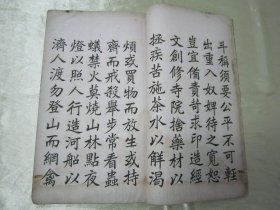 斗稱須要公平不可輕
出重入奴婢待之寬恕
豈宜備責苛求印造經
文創修寺院捨藥材以
拯疾苦施茶水以解渴
煩或買物而放生或持
齋而戒殺舉步常看蟲
蟻禁火莫燒山林點夜
燈以照人行造河船以
濟人渡勿登山而網禽